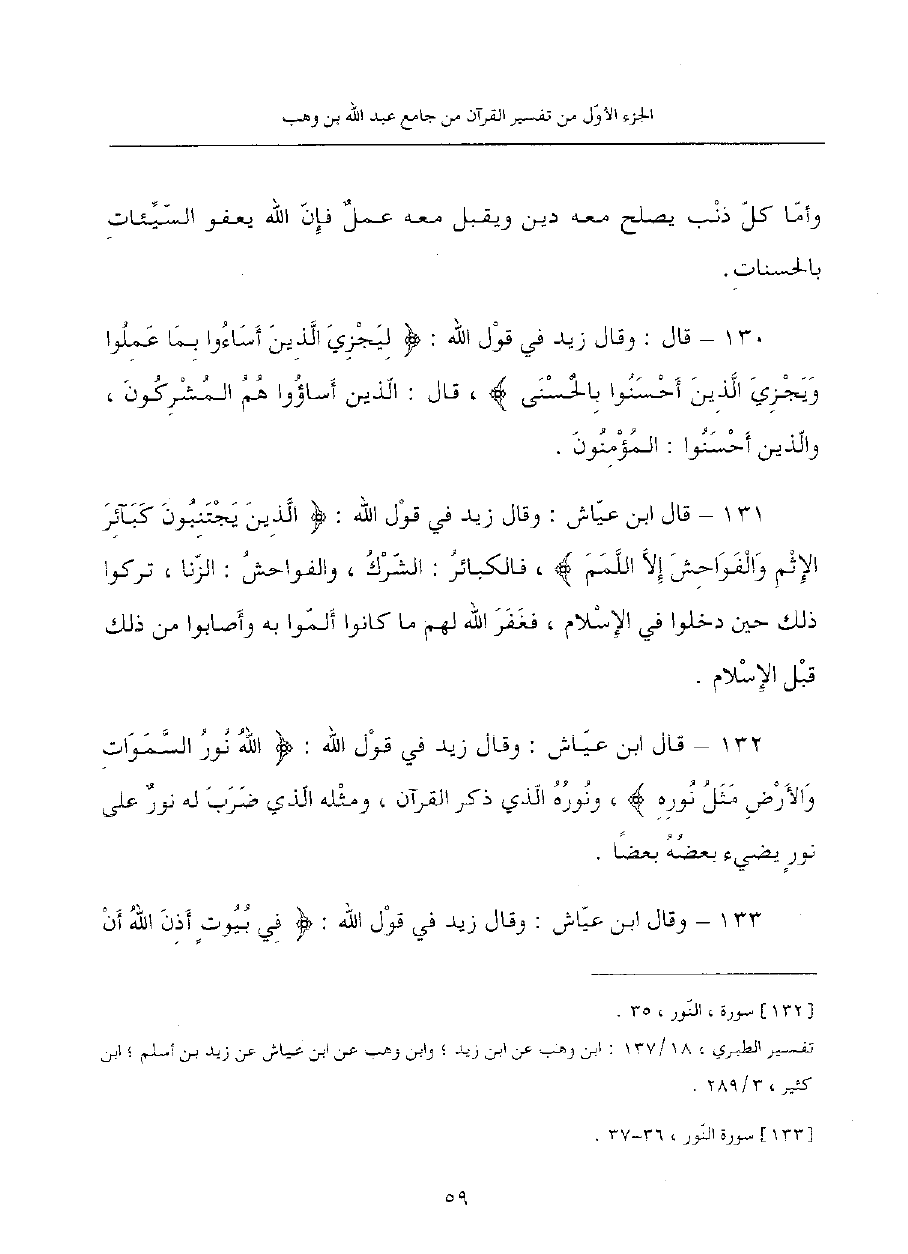 الجزء الأوّل من تفسير القرآن من جامع عبد الله بن وهب
وأمّا كلّ ذنْب يصلح معه دين ويقبل معه عملٌ فإنّ الله يعفو السّيِّئاتِ
بالحسناتِ .
١٣٠ – قال : وقال زيد في قوْل الله : ﴿ لِيَجْزِيَ الَّذِينَ أَسَاءُوا بِمَا عَمِلُوا
وَيَجْزِيَ الَّذِينَ أَحْسَنُوا بِالحُسْنَى ﴾ ، قال : الّذين أساؤُوا هُمُ المُشْرِكُونَ ،
والّذين أحْسَنُوا : المُؤْمِنُونَ .
١٣١ – قال ابن عيّاش : وقال زيد في قوْل الله : ﴿ الَّذِينَ يَجْتَنِبُونَ كَبَآئِرَ
الإِثْمِ وَالْفَوَاحِشَ إِلاَّ اللَّمَمَ ﴾ ، فالكبائرُ : الشّرْكُ ، والفواحشُ : الزّنا ، تركوا
ذلك حين دخلوا في الإِسْلام ، فغَفَرَ الله لهم ما كانوا ألمّوا به وأصابوا من ذلك
قبْل الإِسْلام .
١٣٢ – قال ابن عيّاش : وقال زيد في قوْل الله : ﴿ اللهُ نُورُ السَّمَوَاتِ
وَالأَرْضِ مَثَلُ نُورِهِ ﴾ ، ونُورُهُ الّذي ذكر القرآن ، ومثْله الّذي ضَرَبَ له نورٌ على
نورٍ يضيء بعضُهُ بعضًا .
١٣٣ – وقال ابن عيّاش : وقال زيد في قوْل الله : ﴿ فِي بُيُوتٍ أَذِنَ اللهُ أَنْ
[١٣٢] سورة ، النّور ، ٣٥ .
تفسير الطبري ، ١٣٧/١٨ : ابن وهب عن ابن زيد ؛ وابن وهب عن ابن عياش عن زيد بن أسلم ؛ ابن
كثير ، ٢٨٩/٣ .
[١٣٣] سورة النّور ، ٣٦–٣٧ .
٥٩